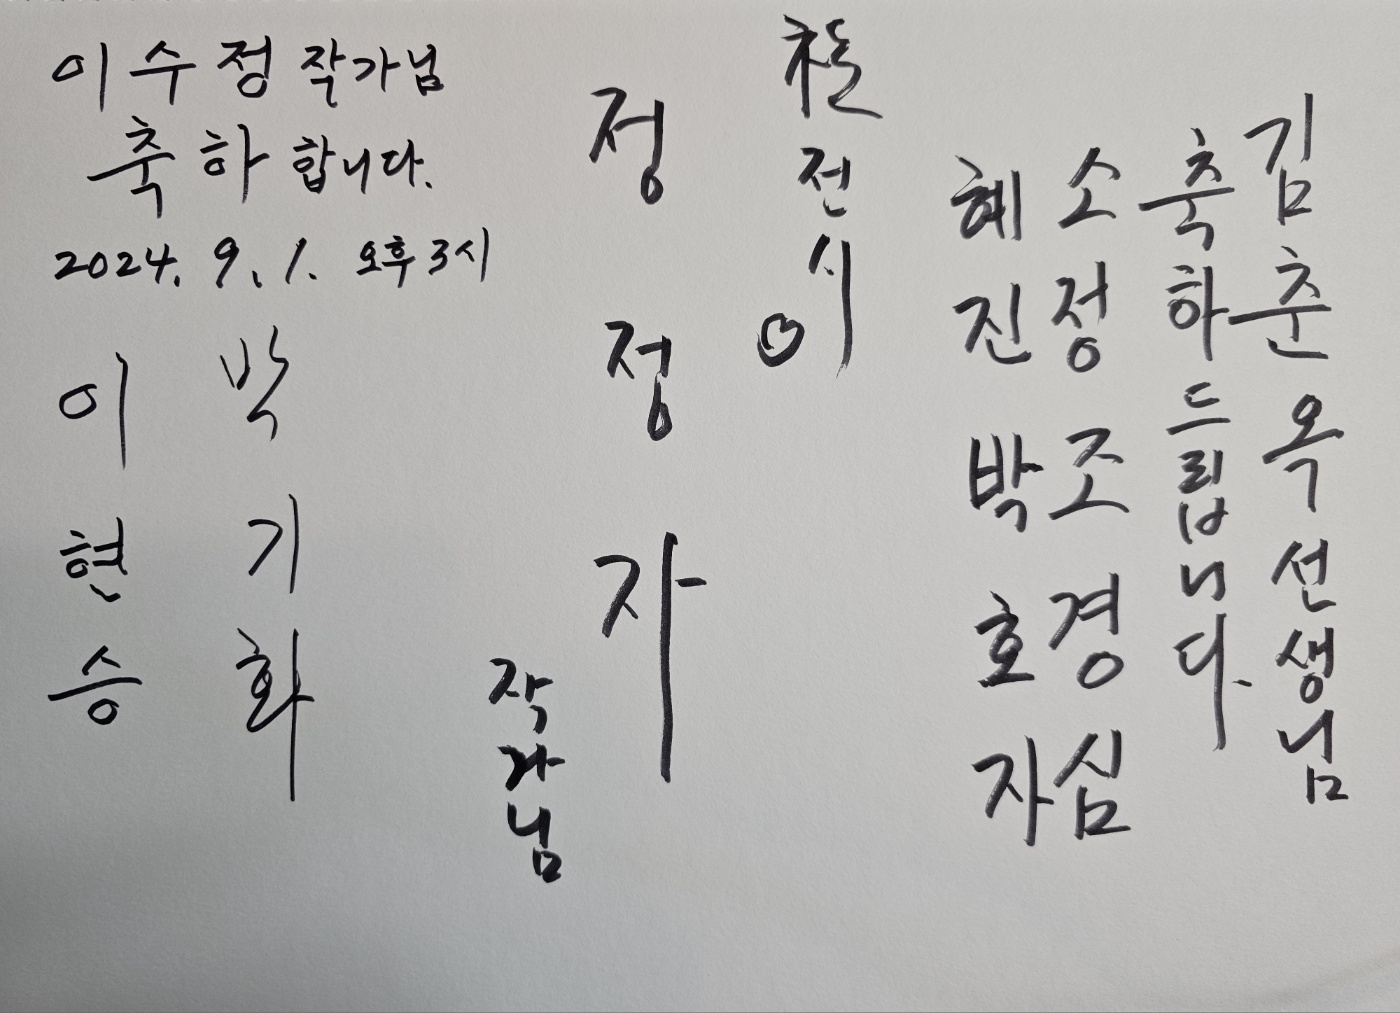 이수정작가님
축하합니다.
2024. 9. 1. 오후 3시
김춘옥선생님
축하드립니다.
소정 조경심
혜진 박호자
祝전시
정정자
작가님
박기화
이현승